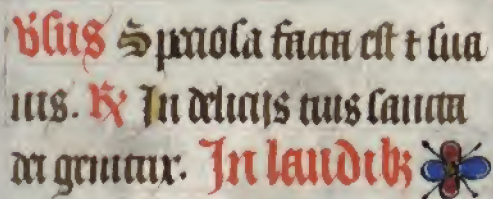 v̄sus Speciosa facta est ⁊ sua
uis. ℟ In delicijs tuis sancta
dei genitrix. In laudibꝫ